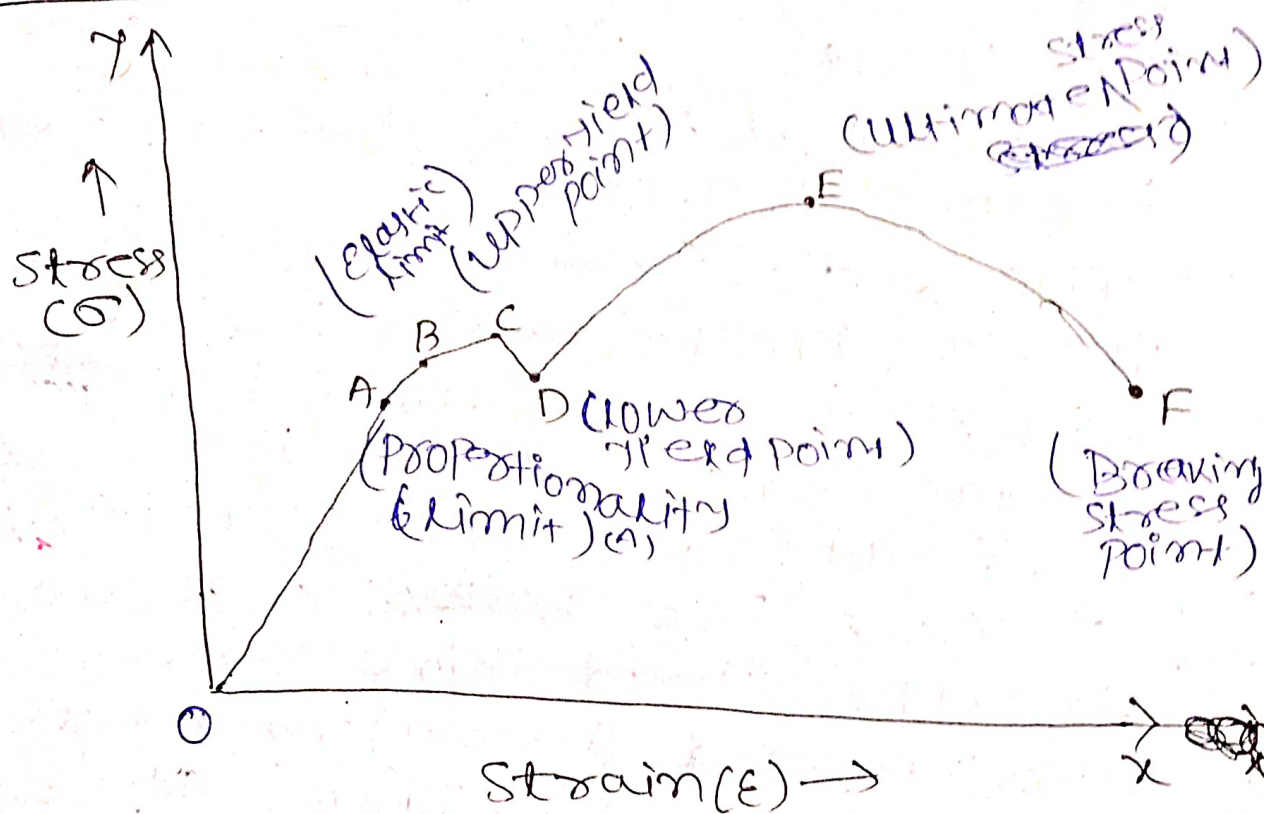 Y
Stress
(σ)
(Elastic
Limit)
(Upper Yield
point)
Stress
(Ultimate ^ Point)
A
B
C
D (Lower
Yield Point)
E
F
(Proportionality
Limit)
(Breaking
Stress
Point)
O
x
Strain (ε) →